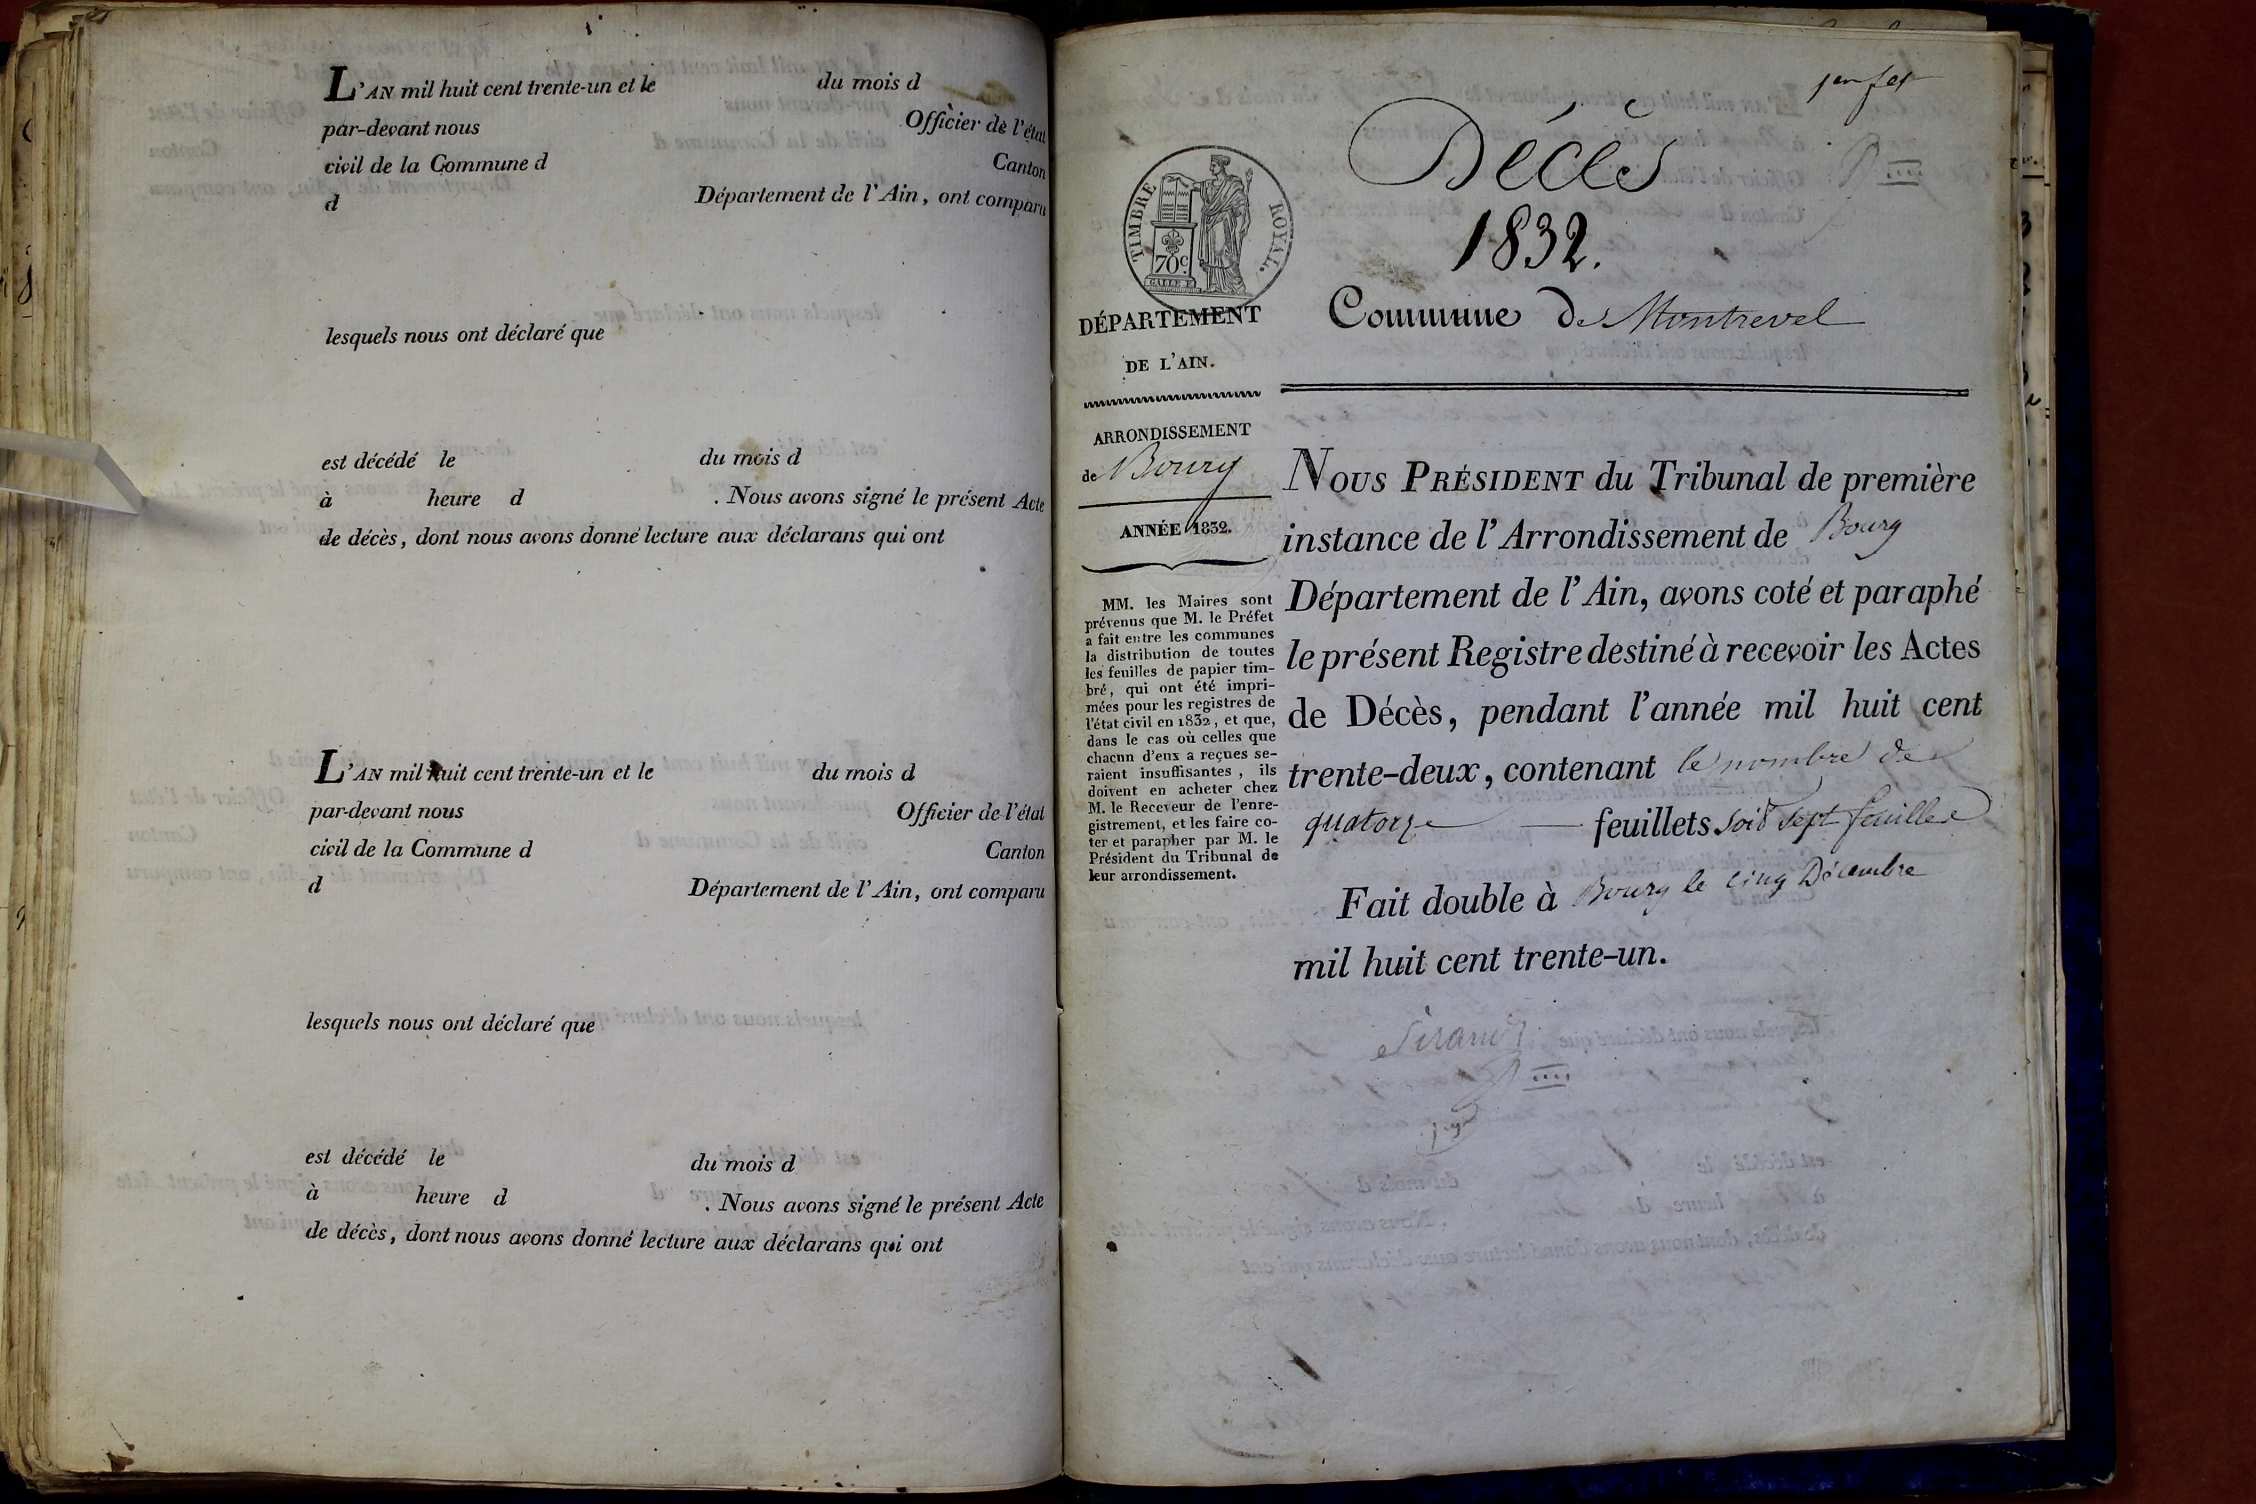 L'AN mil huit cent trente-un et le du mois d
par-devant nous Officier de l'état
civil de la Commune d Canton
d Département de l'Ain, ont comparu
lesquels nous ont déclaré que
est décédé le du mois d
à heure d . Nous avons signé le présent Acte
de décès, dont nous avons donné lecture aux déclarans qui ont
L'AN mil huit cent trente-un et le du mois d
par-devant nous Officier de l'état
civil de la Commune d Canton
d Département de l'Ain, ont comparu
lesquels nous ont déclaré que
est décédé le du mois d
à heure d . Nous avons signé le présent Acte
de décès, dont nous avons donné lecture aux déclarans qui ont
Décès
1832.
Commune de Montrevel
TIMBRE ROYAL.
70c.
DÉPARTEMENT
DE L'AIN.
ARRONDISSEMENT
de Bourg
ANNÉE 1832.
MM. les Maires sont
prévenus que M. le Préfet
a fait entre les communes
la distribution de toutes
les feuilles de papier tim-
bré, qui ont été impri-
mées pour les registres de
l'état civil en 1832, et que,
dans le cas où celles que
chacun d'eux a reçues se-
raient insuffisantes, ils
doivent en acheter chez
M. le Receveur de l'enre-
gistrement, et les faire co-
ter et parapher par M. le
Président du Tribunal de
leur arrondissement.
NOUS PRÉSIDENT du Tribunal de première
instance de l'Arrondissement de Bourg
Département de l'Ain, avons coté et paraphé
le présent Registre destiné à recevoir les Actes
de Décès, pendant l'année mil huit cent
trente-deux, contenant le nombre de
quatorze — feuillets soit sept feuilles
Fait double à Bourg le cinq Décembre
mil huit cent trente-un.